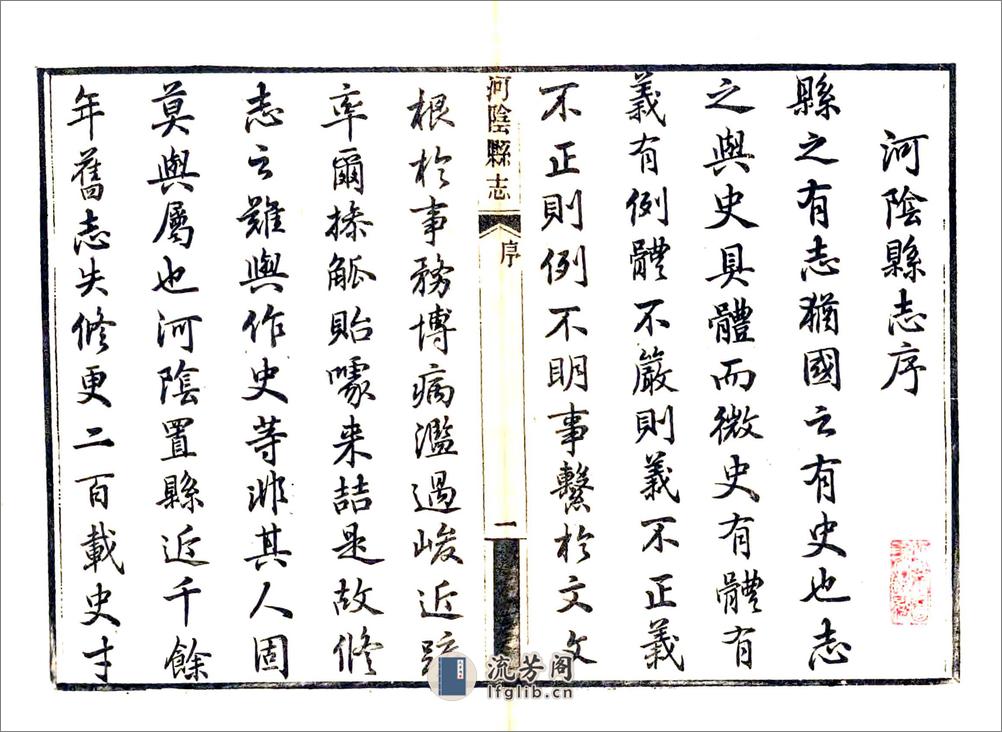 河陰縣志序
縣之有志猶國之有史也志
之與史具體而微史有體有
義有例體不嚴則義不正義
不正則例不明事繫於文文
河陰縣志
序
一
根於事務博病濫過峻近疏
率爾操觚貽噱来喆是故修
志之難與作史等非其人固
莫與屬也河陰置縣近千餘
年舊志失修更二百載史才
流芳阁
lfglib.cn